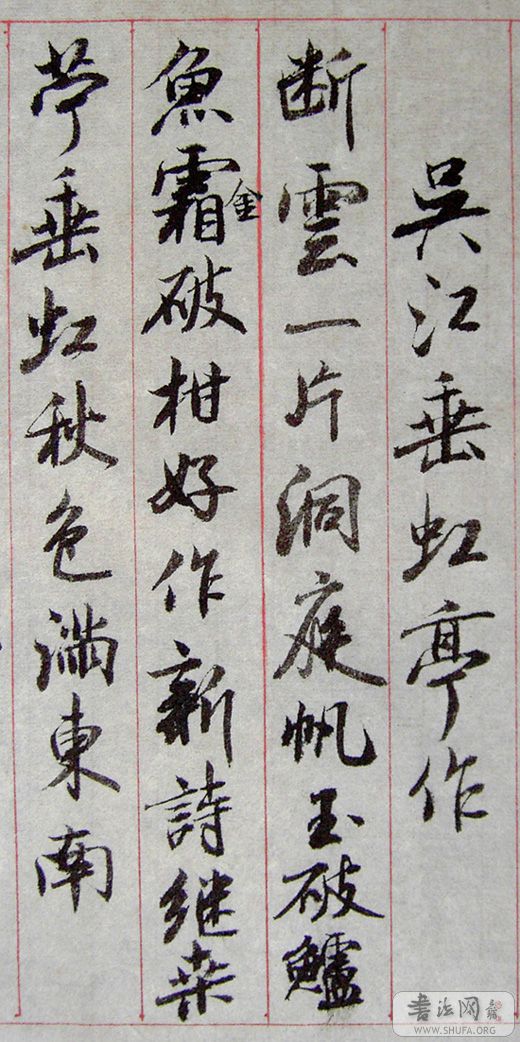 吳江垂虹亭作
断雲一片洞庭帆玉破鱸
魚霜金破柑好作新詩继桒
苧垂虹秋色满東南
书法网
WWW.SHUFA.ORG